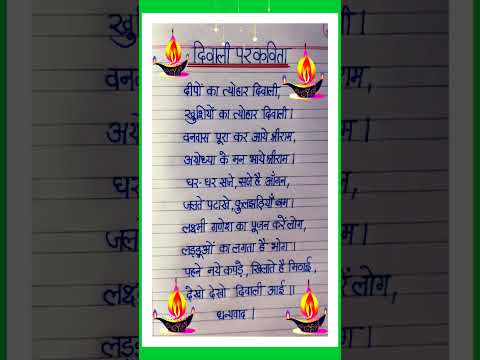 दिवाली पर कविता
दीपों का त्योहार दिवाली,
खुशियों का त्योहार दिवाली।
वनवास पूरा कर आये श्रीराम,
अयोध्या के मन भाये श्रीराम।
घर-घर सजे, सजे है आँगन,
जलते पटाखे, फुलझड़ियाँ बम।
लक्ष्मी गणेश का पूजन करें लोग,
लड्डूओं का लगता है भोग।
पहने नये कपड़े, खिलाते है मिठाई,
देखो देखो दिवाली आई॥
धन्यवाद।